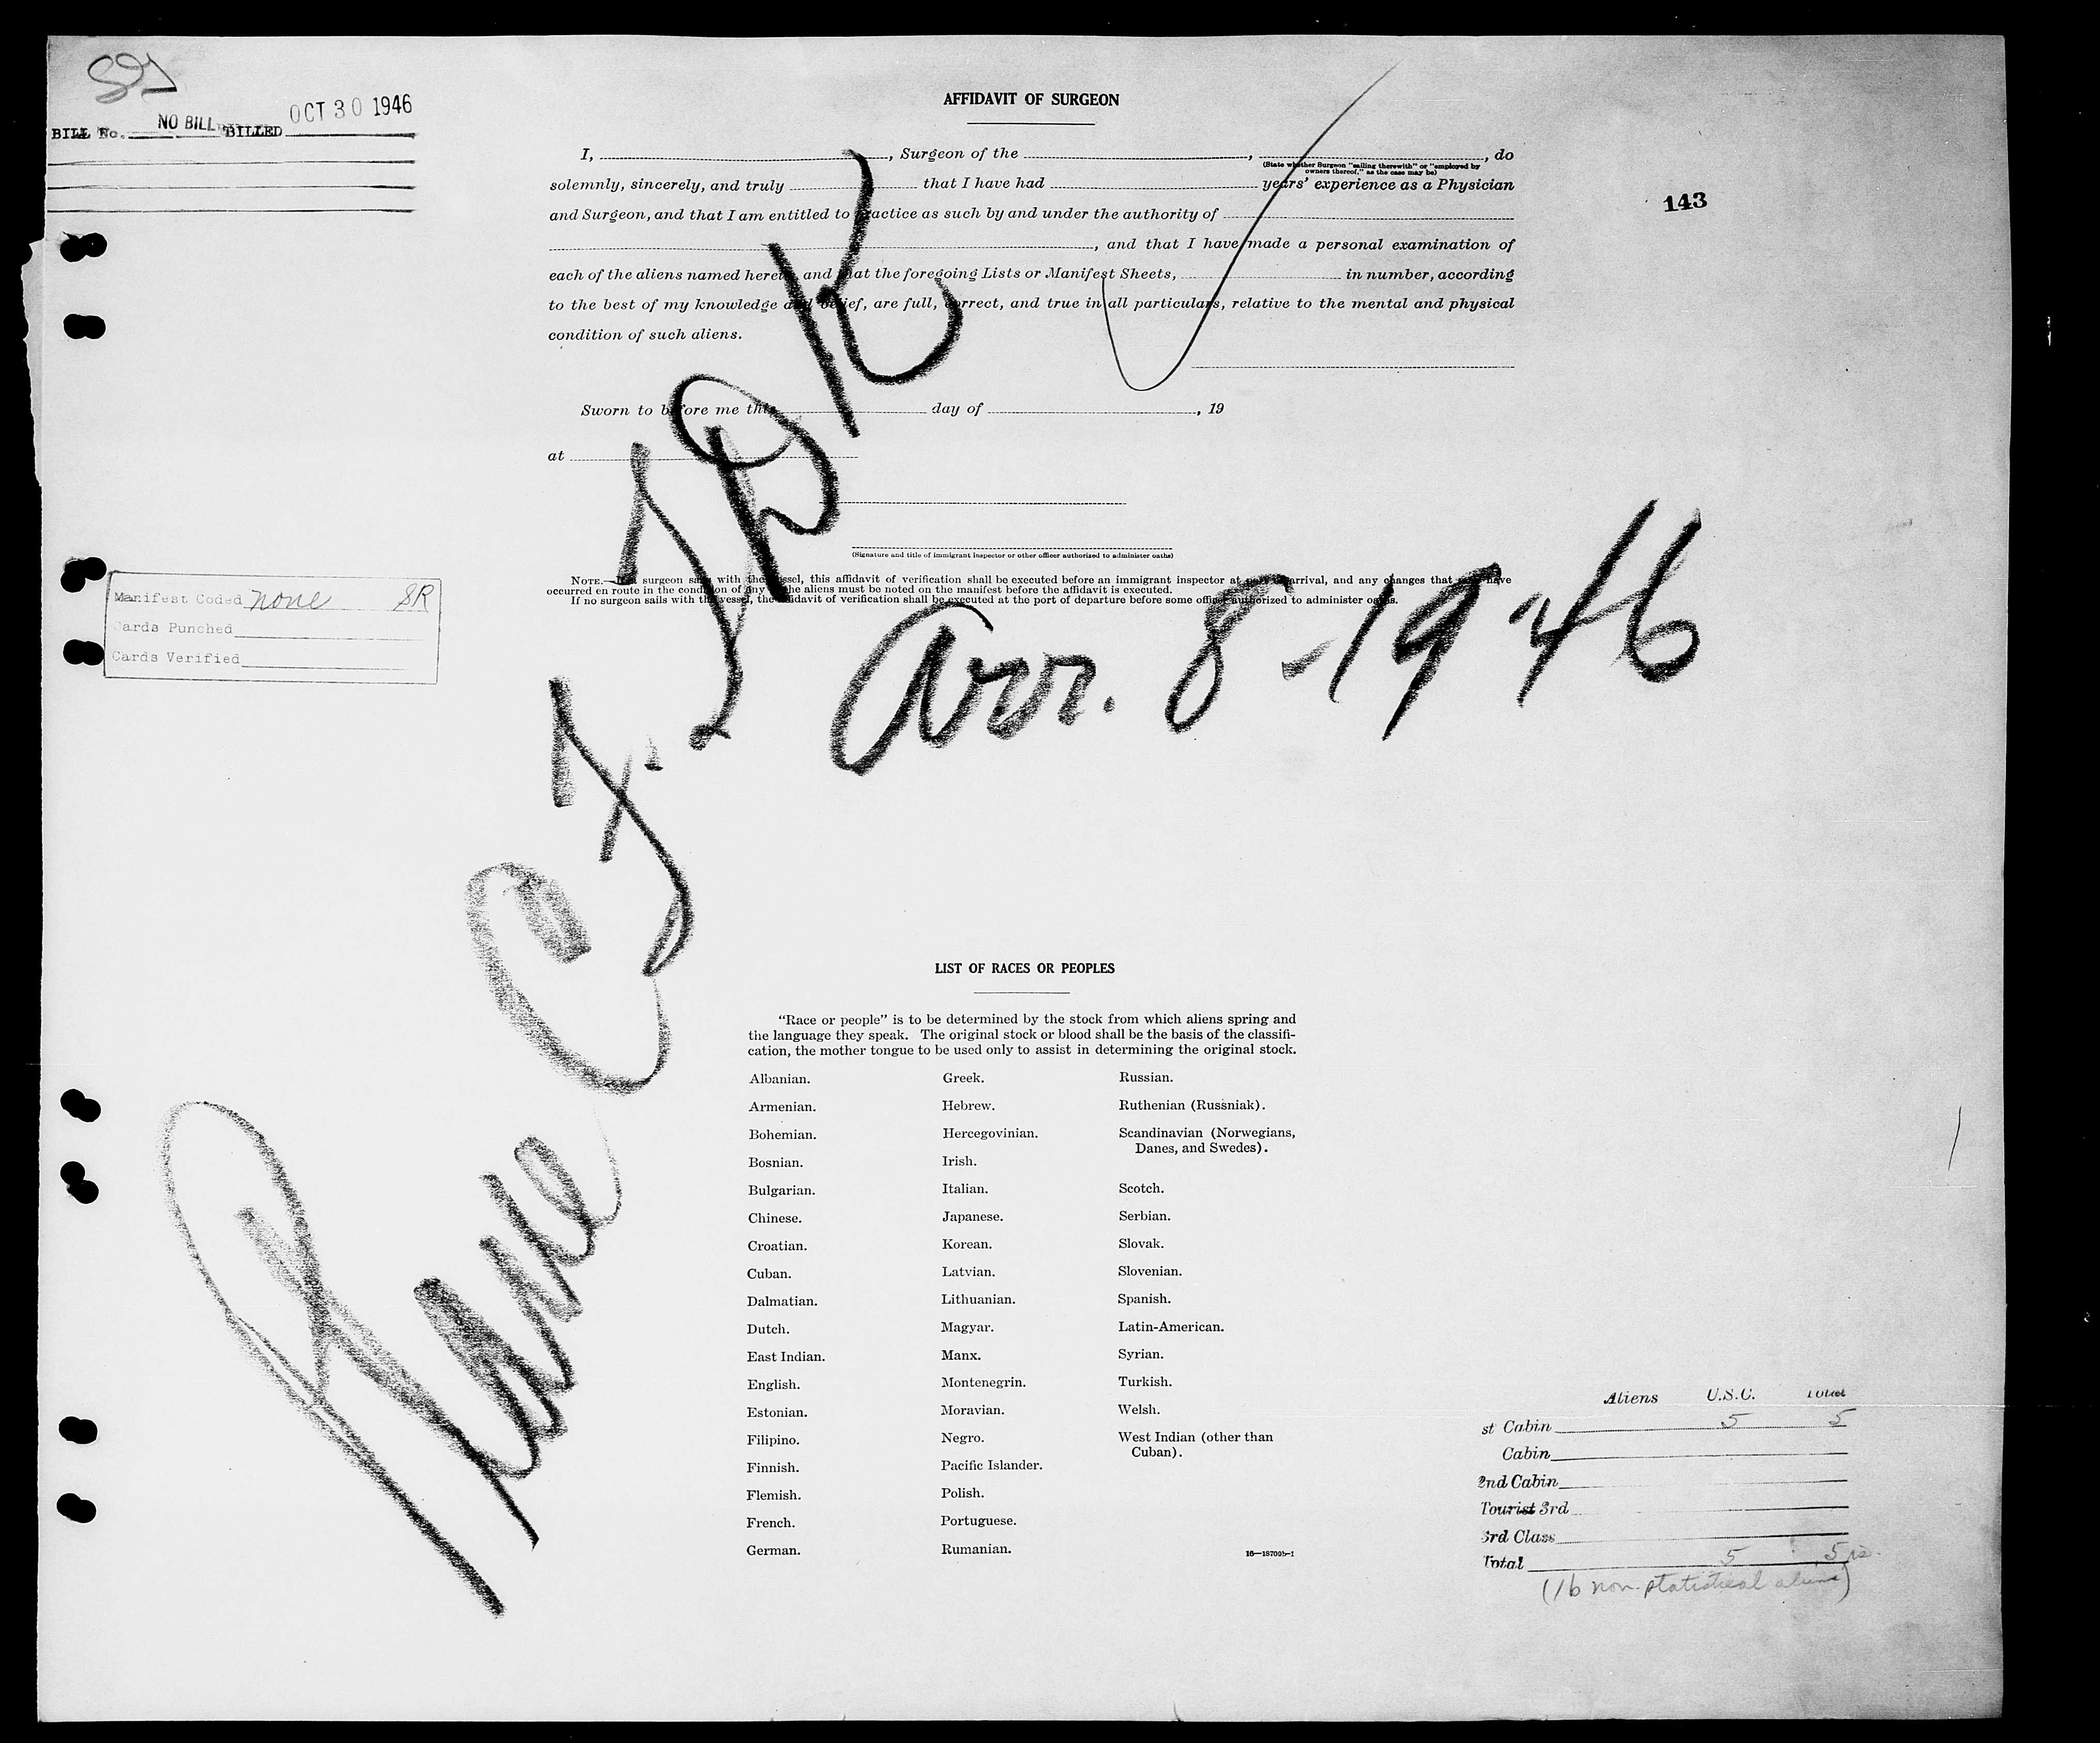 OCT 30 1946
BILL No. NO BILL BILLED
AFFIDAVIT OF SURGEON
I, , Surgeon of the , , do
(State whether Surgeon "sailing therewith" or "employed by
owners thereof," as the case may be)
solemnly, sincerely, and truly that I have had years' experience as a Physician
and Surgeon, and that I am entitled to practice as such by and under the authority of
143
, and that I have made a personal examination of
each of the aliens named herein, and that the foregoing Lists or Manifest Sheets, in number, according
to the best of my knowledge and belief, are full, correct, and true in all particulars, relative to the mental and physical
condition of such aliens.
Sworn to before me this day of , 19
at
(Signature and title of immigrant inspector or other officer authorized to administer oaths)
NOTE.—If a surgeon sails with the vessel, this affidavit of verification shall be executed before an immigrant inspector at port of arrival, and any changes that may have
occurred en route in the condition of any of the aliens must be noted on the manifest before the affidavit is executed.
If no surgeon sails with the vessel, the affidavit of verification shall be executed at the port of departure before some officer authorized to administer oaths.
Manifest Coded none SR
Cards Punched
Cards Verified
Plane
Arr. 8-19-46
LIST OF RACES OR PEOPLES
"Race or people" is to be determined by the stock from which aliens spring and
the language they speak. The original stock or blood shall be the basis of the classifi-
cation, the mother tongue to be used only to assist in determining the original stock.
Albanian.
Armenian.
Bohemian.
Bosnian.
Bulgarian.
Chinese.
Croatian.
Cuban.
Dalmatian.
Dutch.
East Indian.
English.
Estonian.
Filipino.
Finnish.
Flemish.
French.
German.
Greek.
Hebrew.
Hercegovinian.
Irish.
Italian.
Japanese.
Korean.
Latvian.
Lithuanian.
Magyar.
Manx.
Montenegrin.
Moravian.
Negro.
Pacific Islander.
Polish.
Portuguese.
Rumanian.
Russian.
Ruthenian (Russniak).
Scandinavian (Norwegians,
Danes, and Swedes).
Scotch.
Serbian.
Slovak.
Slovenian.
Spanish.
Latin-American.
Syrian.
Turkish.
Welsh.
West Indian (other than
Cuban).
Aliens U.S.C. Total
st Cabin 5 5
Cabin
2nd Cabin
Tourist 3rd
3rd Class
Total 5 5
(16 non-statistical aliens)